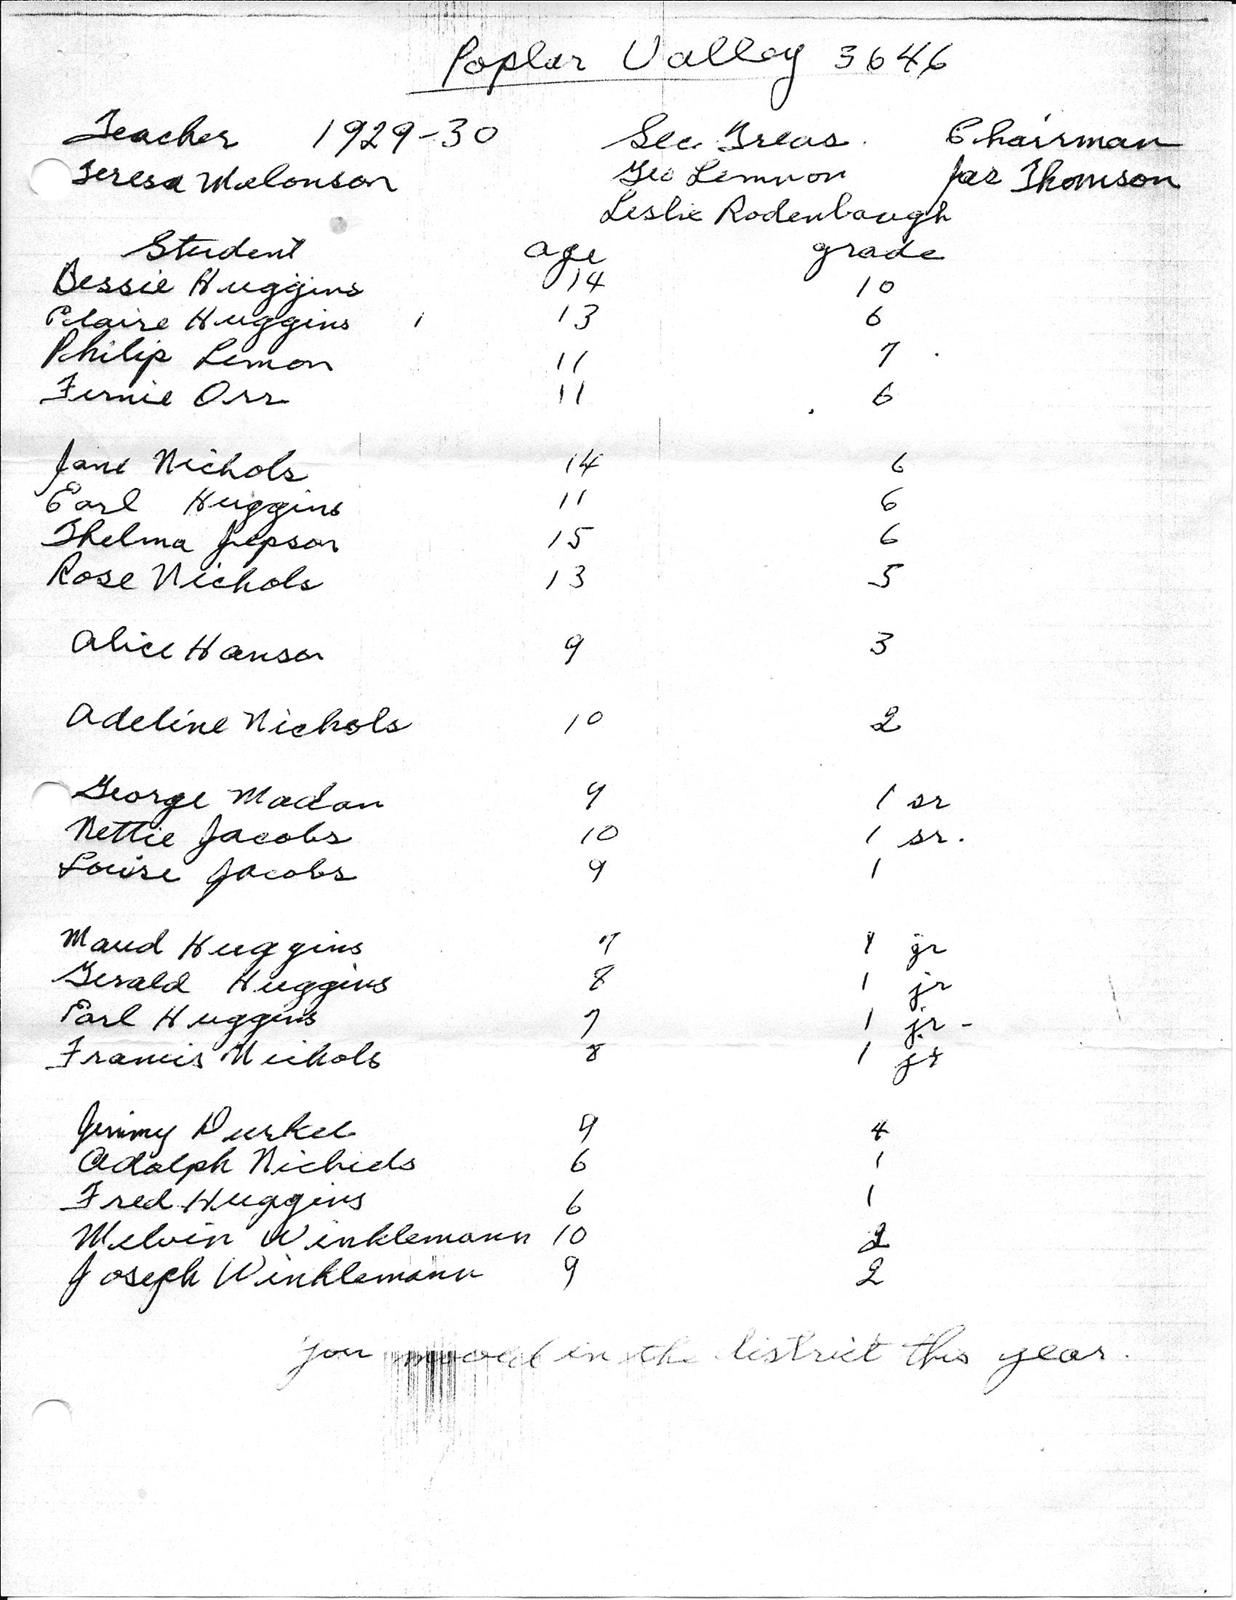 Poplar Valley 3646
Teacher 1929-30 Sec Treas. Chairman
Teresa Melonson Geo Lemnon Jas Thomson
Leslie Rodenbaugh
Student age grade
Bessie Huggins 14 10
Claire Huggins 13 6
Philip Lemon 11 7
Fernie Orr 11 6
Jane Nichols 14 6
Earl Huggins 11 6
Thelma Jepson 15 6
Rose Nichols 13 5
Alice Hanson 9 3
Adeline Nichols 10 2
George Madan 9 1 sr
Nettie Jacobs 10 1 sr.
Louise Jacobs 9 1
Maud Huggins 7 1 jr
Gerald Huggins 8 1 jr
Earl Huggins 7 1 jr -
Francis Nichols 8 1 jr
Jimmy Durkee 9 4
Adolph Nichols 6 1
Fred Huggins 6 1
Melvin Winklemann 10 2
Joseph Winklemann 9 2
You moved in the district this year.